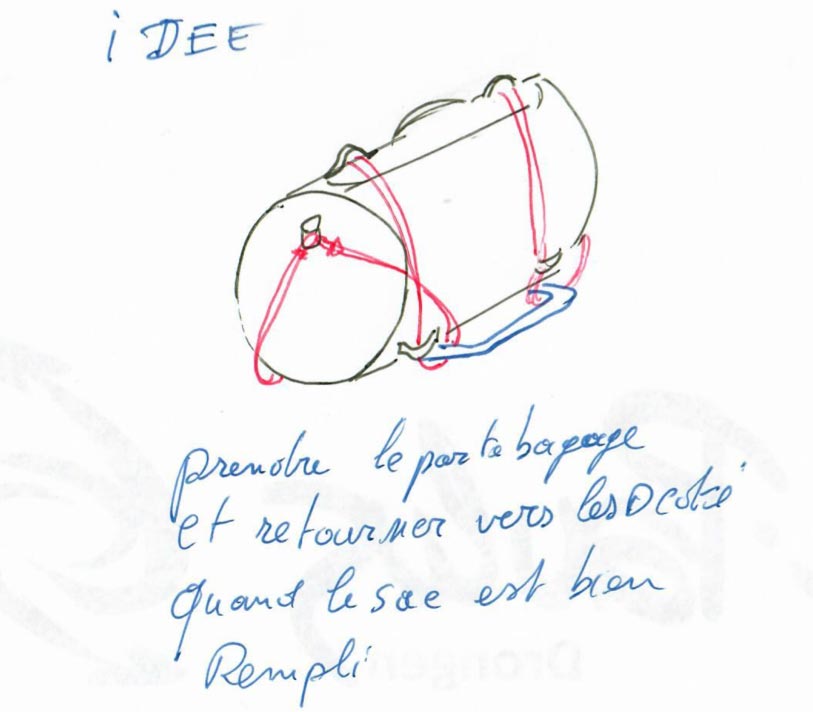 iDEE
prendre le porte bagage
et retourner vers les D costé
quand le sac est bien
Rempli